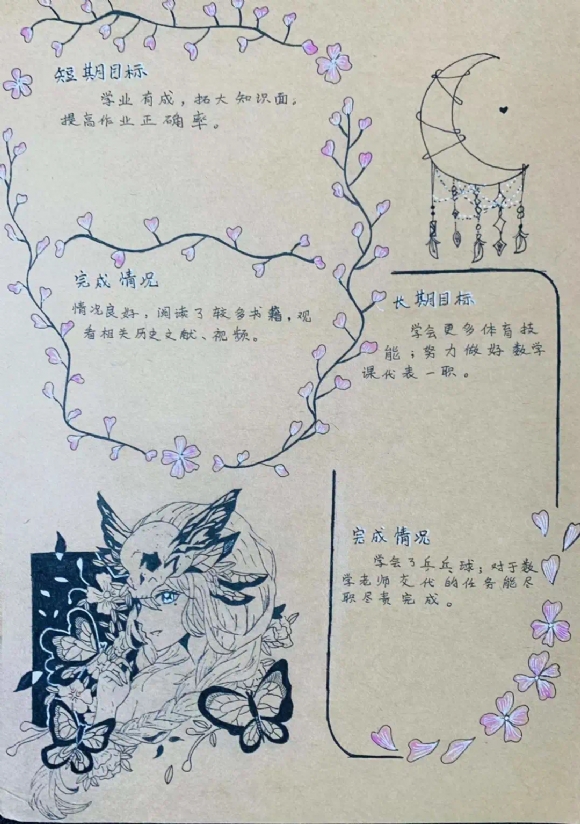 短期目标
学业有成，拓大知识面。
提高作业正确率。
完成情况
情况良好，阅读了较多书籍，观
看相关历史文献、视频。
长期目标
学会更多体育技
能；努力做好数学
课代表一职。
完成情况
学会了乒乓球；对于数
学老师交代的任务能尽
职尽责完成。